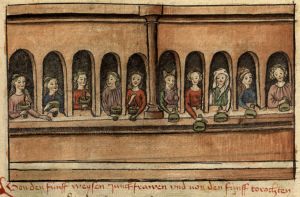 Von den funff weysen Junckfrawen vnd von den funff torochten